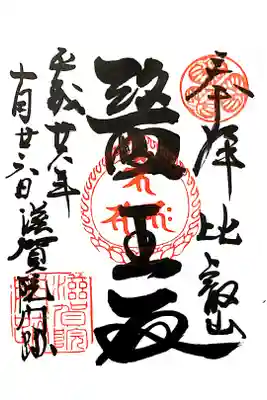 奉拝 比叡山
醫王殿
平成廿八年
十月廿六日 滋賀院門跡
滋賀院